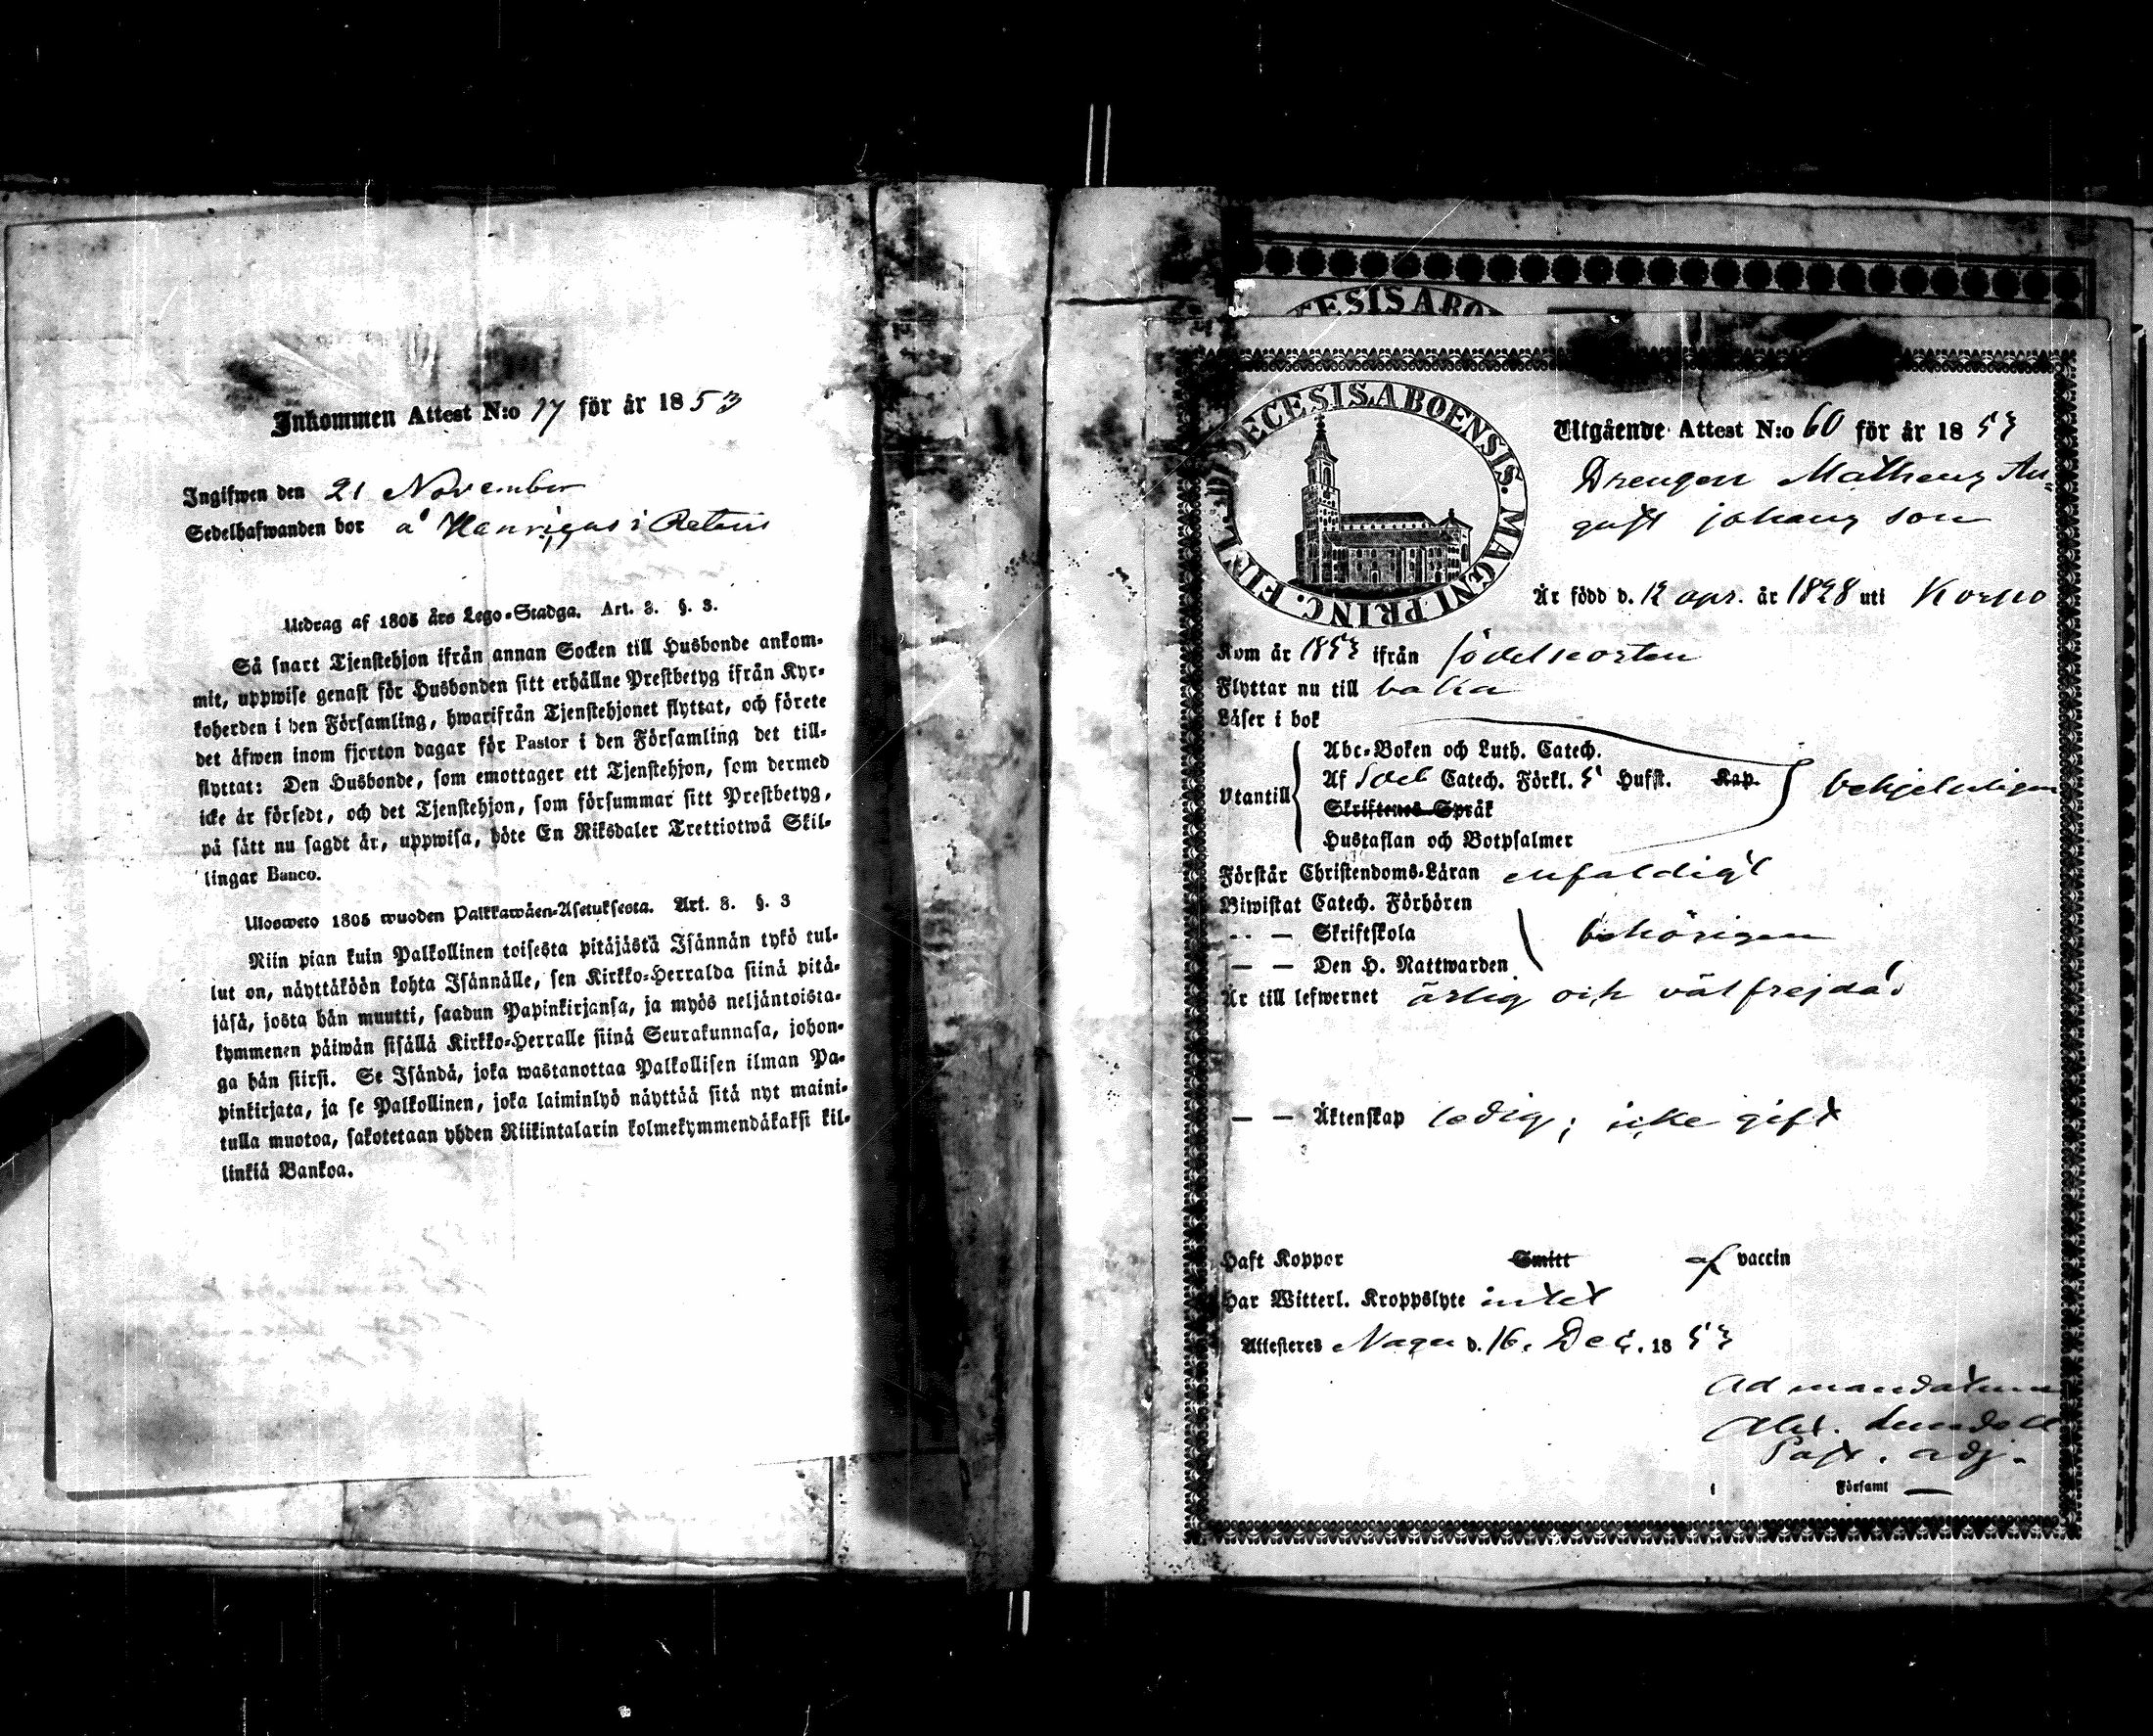 Inkommen Attest N:o 17 för år 1853
Ingifwen den 21 November
Sedelhafwanden bor å i
Utdrag af 1805 års Lego-Stadga. Art. 3. §. 3.
Så snart Tjenstehjon ifrån annan Socken till Husbonde ankom-
mit, uppwise genast för Husbonden sitt erhållne Prestbetyg ifrån Kyr-
koherden i den Församling, hwarifrån Tjenstehjonet flyttat, och förete
det äfwen inom fjorton dagar för Pastor i den Församling det till-
flyttat: Den Husbonde, som emottager ett Tjenstehjon, som dermed
icke är försedt, och det Tjenstehjon, som försummar sitt Prestbetyg,
på sätt nu sagdt är, uppwisa, böte En Riksdaler Trettiotwå Skil-
lingar Banco.
Ulosweto 1805 wuoden Palkkawäen-Asetuksesta. Art. 3. §. 3
Niin pian kuin Palkollinen toisesta pitäjästä Isännän tykö tul-
lut on, näyttäköön kohta Isännälle, sen Kirkko-Herralda siinä pitä-
jäsä, josta hän muutti, saadun Papinkirjansa, ja myös neljäntoista-
kymmenen päiwän sisällä Kirkko-Herralle siinä Seurakunnasa, johon-
ga hän siirsi. Se Isändä, joka wastanottaa Palkollisen ilman Pa-
pinkirjata, ja se Palkollinen, joka laiminlyö näyttää sitä nyt maini-
tulla muotoa, sakotetaan yhden Riikintalarin kolmekymmendäkaksi kil-
linkiä Bankoa.
ECESIS ABO
DIOECESIS ABOENSIS. MAGNI PRINC. FINL.
Utgående Attest N:o 60 för år 1853
Drengen Mathens Au-
gust johans son
Är född d. 12 apr. år 1828 uti Korpo
Kom år 1853 ifrån födelseorten
Flyttar nu till baka
Läser i bok
Abc-Boken och Luth. Catech.
Utantill Af Catech. Förkl. 5 Hufst. Kap. behjelpligen
Skriftenes Språk
Hustaflan och Botpsalmer
Förstår Christendoms-Läran enfaldigt
Biwistat Catech. Förhören
— — Skriftskola behörigen
— — Den H. Nattwarden
Är till lefwernet ärlig och välfrejdad
— — Äktenskap ledig; icke gift
Haft Koppor Smitt af vaccin
Har Witterl. Kroppslyte intet
Attesteres Nagu d. 16. Dec. 1853
Ad mandatum
Alex. Lundell
Past. adj.
Församl —